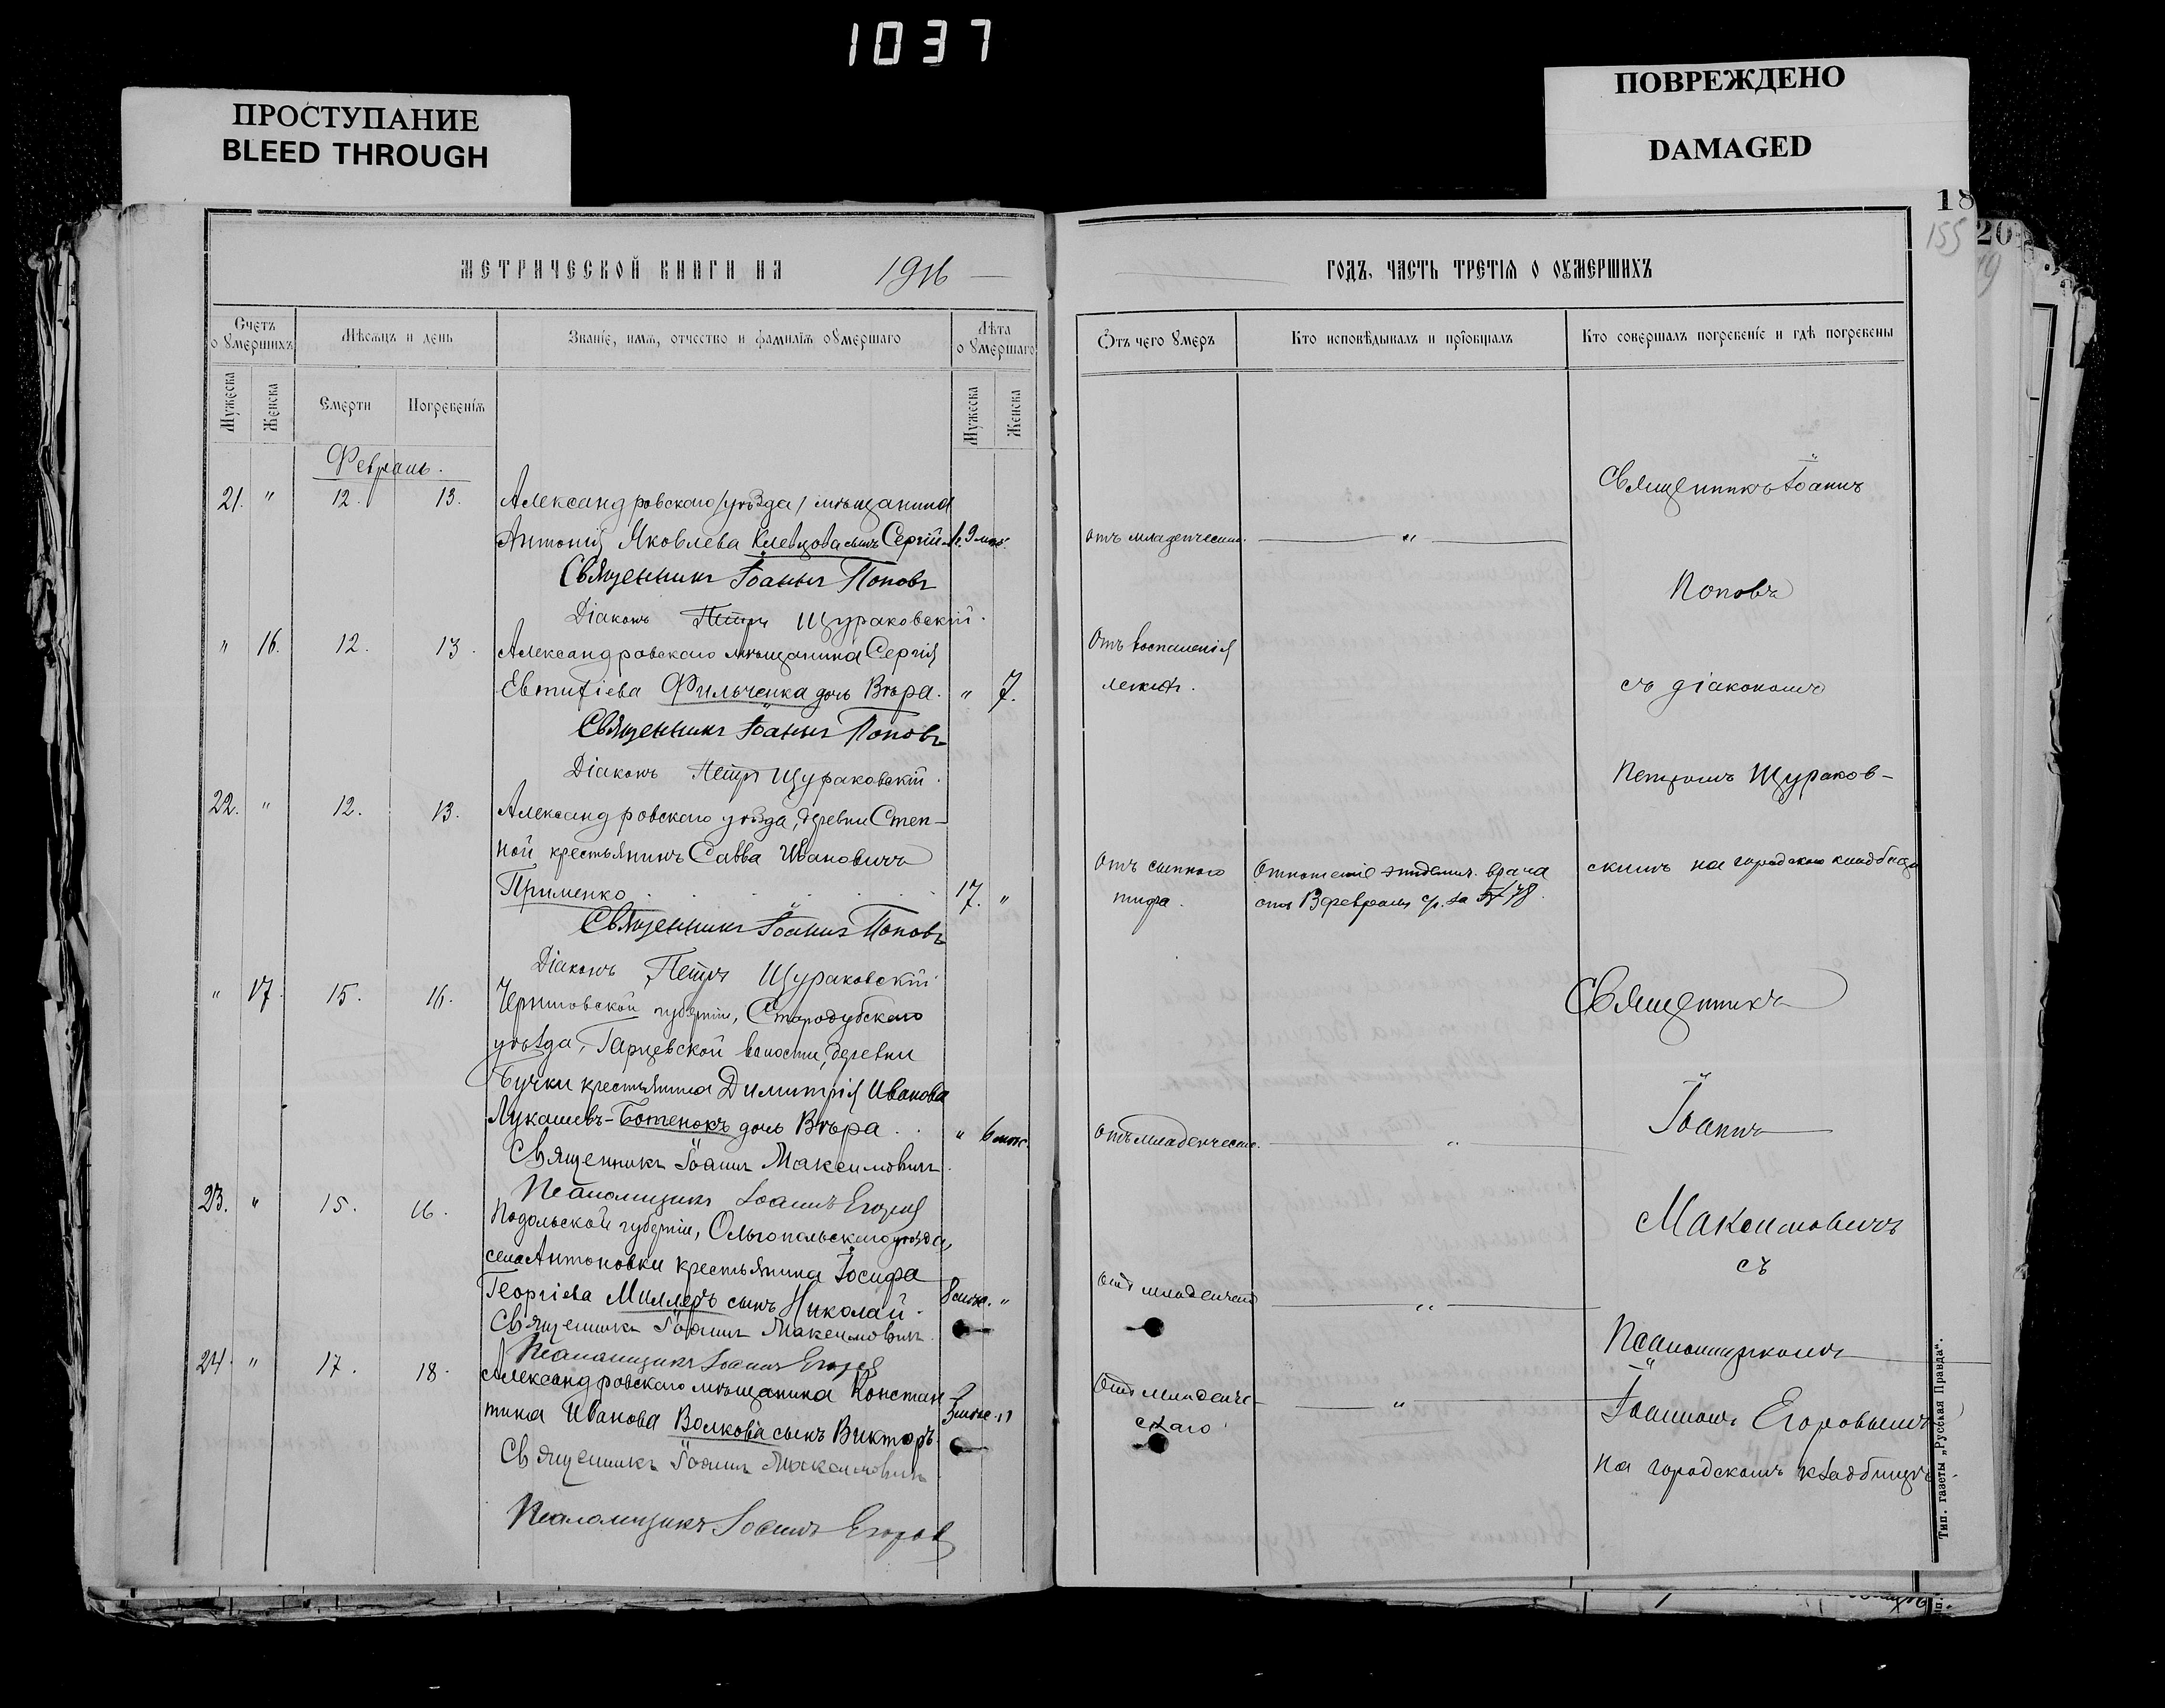 1037
ПРОСТУПАНИЕ
BLEED THROUGH
ПОВРЕЖДЕНО
DAMAGED
18
155
20
19
МЕТРИЧЕСКОЙ КНИГИ НА 1916
ГОДЪ, ЧАСТЬ ТРЕТІЯ О ОУМЕРШИХЪ
Счетъ оумершихъ
Мѣсяцъ и день
Званіе, имя, отчество и фамилія оумершаго
Лѣта оумершаго
Отъ чего оумеръ
Кто исповѣдывалъ и пріобщалъ
Кто совершалъ погребеніе и гдѣ погребены
Мужеска
Женска
Смерти
Погребенія
Мужеска
Женска
Февраль.
21. " 12. 13. Александровскаго /уѣзда/ мѣщанина
Антонія Яковлева Клевцова сынъ Сергій 9 мѣс.
Отъ младенческ. "
Священникъ Іоаннъ Поповъ
Діаконъ Петръ Щураковскій.
" 16. 12. 13. Александровскаго мѣщанина Сергія
Евтихіева Фильченка дочь Вѣра. " 7.
Отъ воспаленія
легкихъ.
Священникъ Іоаннъ Поповъ
Діаконъ Петръ Щураковскій.
22. " 12. 13. Александровскаго уѣзда, деревни Степ-
ной крестьянинъ Савва Ивановичъ
Применко 17. "
Отъ сыпного
тифа.
Отношеніе эпидемич. врача
отъ 13 февраля с/г. за № 178.
Священникъ Іоаннъ Поповъ
Діаконъ Петръ Щураковскій
Священникъ Іоаннъ
Поповъ
съ діакономъ
Петромъ Щураков-
скимъ на городскомъ кладбищѣ
" 17. 15. 16. Черниговской губерніи, Стародубскаго
уѣзда, Гарцевской волости, деревни
Бучки крестьянина Димитрія Иванова
Лукашевъ-Ботенокъ дочь Вѣра. " 6 мѣс.
Отъ младенческ. "
Священникъ Іоаннъ Максимовичъ.
Псаломщикъ Іоаннъ Егоровъ
23. " 15. 16. Подольской губерніи, Ольгопольскаго уѣзда,
села Антоновки крестьянина Іосифа
Георгіева Миллеръ сынъ Николай. 8 мѣс. "
Отъ младенческ "
Священникъ Іоаннъ Максимовичъ.
Псаломщикъ Іоаннъ Егоровъ
24. " 17. 18. Александровскаго мѣщанина Констан-
тина Иванова Волкова сынъ Викторъ мѣс. "
Отъ младенче-
скаго "
Священникъ Іоаннъ Максимовичъ
Псаломщикъ Іоаннъ Егоровъ
Священникъ
Іоаннъ
Максимовичъ
съ
Псаломщикомъ
Іоанномъ Егоровымъ
на городскомъ кладбищѣ.
Тип. газеты „Русская Правда".